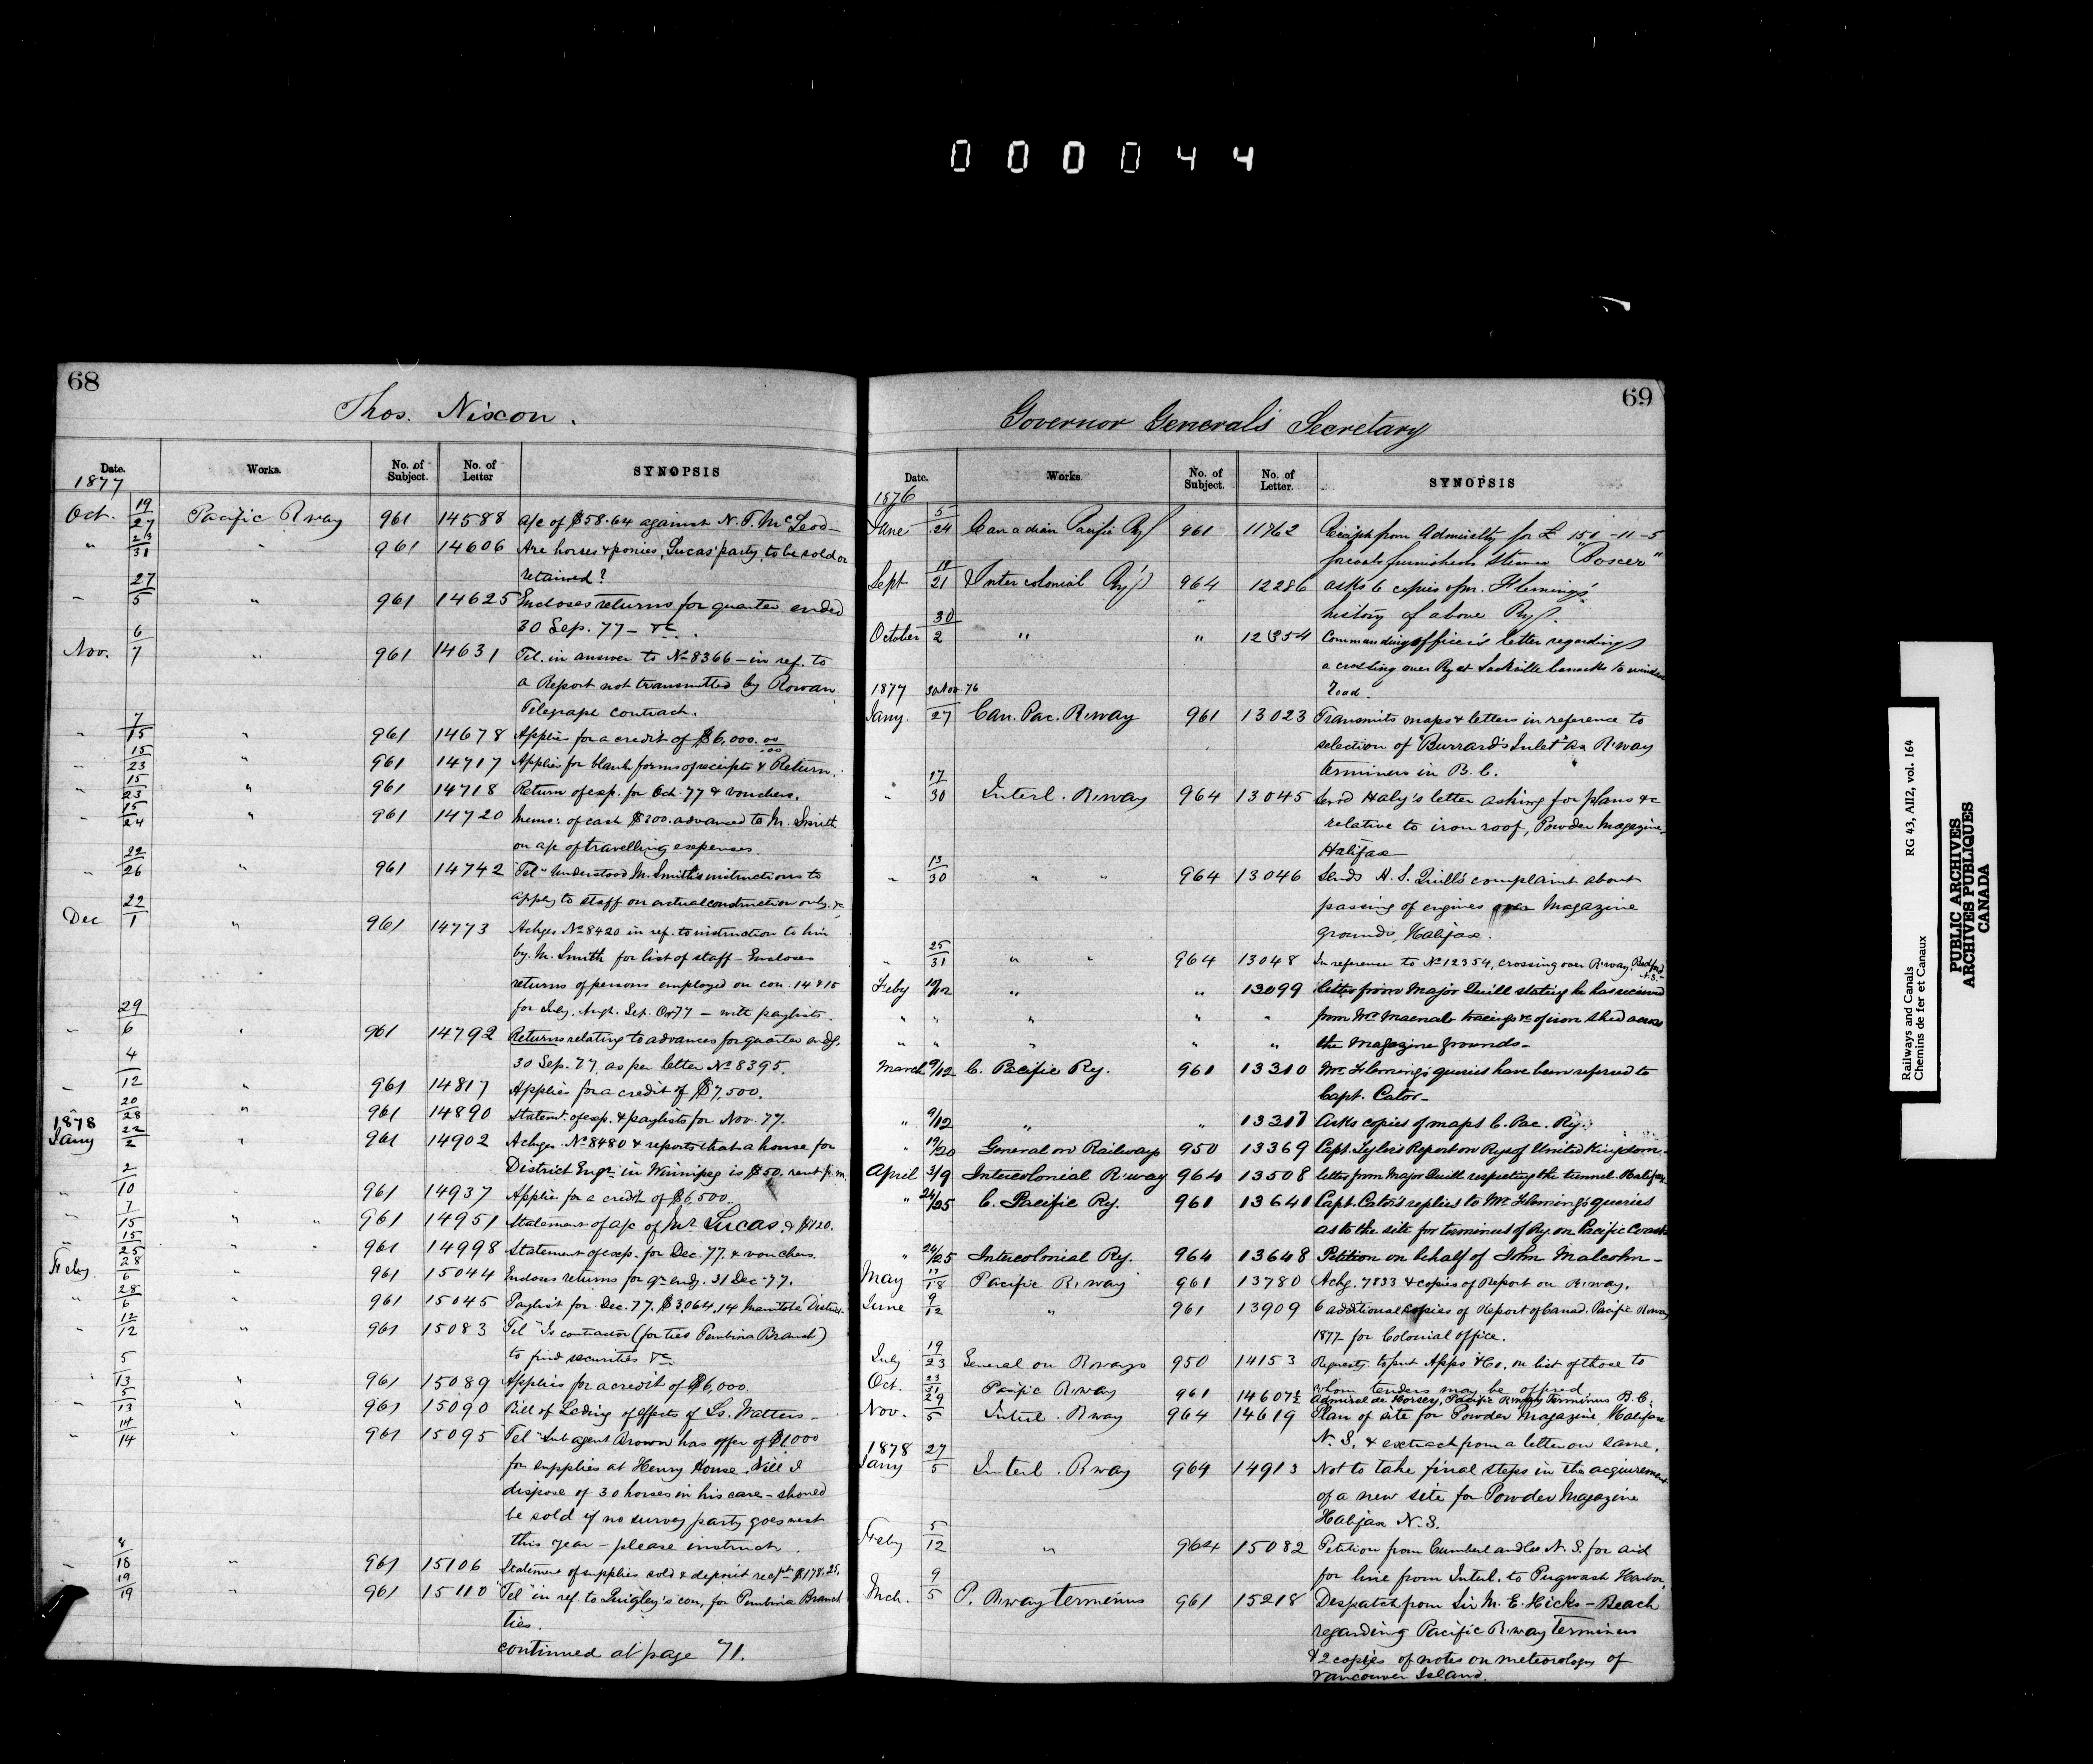 000044
68
Thos. Nixon.
Date. Works. No. of Subject. No. of Letter SYNOPSIS
1877
Oct. 19/27 Pacific Rway 961 14588 a/c of $58.64 against N. T. McLeod—
" 23/31 " 961 14606 Are horses & ponies, Lucas' party, to be sold or
retained?
" 27/5 " 961 14625 Encloses returns for quarter ended
30 Sep. 77 — &c.
Nov. 6/7 " 961 14631 Tel. in answer to No 8366 — in ref. to
a Report not transmitted by Rowan
Telegraph contract.
" 7/15 " 961 14678 Applies for a credit of $6,000.00/100
" 15/23 " 961 14717 Applies for blank forms of receipts & Return.
" 15/23 " 961 14718 Return of exp. for Oct. 77 & vouchers.
" 15/24 " 961 14720 Memo: of cash $200. advanced to M. Smith
on a/c of travelling expenses.
" 22/26 " 961 14742 "Tel" Understood M. Smith's instructions to
apply to staff on actual construction only. &c
Dec 22/1 " 961 14773 Ackges No 8420 in ref. to instruction to him
by M. Smith for list of staff — Encloses
returns of persons employed on con. 14 & 15
for July, Augt. Sep. Oct 77 — with paylists.
" 29/6 " 961 14792 Returns relating to advances for quarter endg.
30 Sep. 77, as per letter No 8395.
" 4/12 " 961 14817 Applies for a credit of $7,500.
" 20/28 " 961 14890 Statemt. of exp. & paylists for Nov. 77.
1878
Jany 22/2 " 961 14902 Ackges No 8480 & reports that a house for
District Engr. in Winnipeg is $50. rent p.m.
" 2/10 " 961 14937 Applies for a credit of $6,500.
" 7/15 " " 961 14951 Statement of a/c of Mr Lucas, & $120.
" 15/25 " " 961 14998 Statement of exp. for Dec. 77. & vouchers.
Feby. 28/6 " 961 15044 Encloses returns for qr. endg. 31 Dec. 77.
" 28/6 " 961 15045 Paylist for Dec. 77. $3,064.14 Manitoba District.
" 12/12 " 961 15083 "Tel" Is contractor (for ties Pembina Branch)
to find securities &c
" 5/13 " 961 15089 Applies for a credit of $6,000.
" 5/13 " 961 15090 Bill of Lading of effects of Ls. Watters—
" 14/14 " 961 15095 "Tel" Sub agent Brown has offer of $1,000
for supplies at Henry House. Will I
dispose of 30 horses in his care — should
be sold if no survey party goes west
this year — please instruct.
" 8/18 " 961 15106 Statement of supplies sold & deposit recpt $178.25.
" 19/19 " 961 15110 "Tel" in ref. to Quigley's con, for Pembina Branch
ties.
continued at page 71.
69
Governor General's Secretary
Date. Works No. of Subject. No. of Letter. SYNOPSIS
1876
June 5/24 Canadian Pacific Ry 961 11762 Receipt from Admiralty for £ 151-11-5
for coals furnished Steamer "Boxer"
Sept 19/21 Intercolonial Ry 964 12286 asks 6 copies of Mr. Fleming's
history of above Ry.
October 30/2 " " 12354 Commanding officer's letter regarding
a crossing over Ry at Sackville to Windsor
Road.
1877 30 Nov. 76
Jany. /27 Can. Pac. Rway 961 13023 Transmits maps & letters in reference to
selection of "Burrard's Inlet" as Rway
terminus in B.C.
" 17/30 Interl. Rway 964 13045 Send Haly's letter asking for plans &c
relative to iron roof, Powder Magazine,
Halifax
" 13/30 " " 964 13046 Sends H. S. Quill's complaint about
passing of engines over Magazine
grounds, Halifax.
" 25/31 " " 964 13048 In reference to No 12354, crossing over Rway. Bedford N.S.
Feby 10/12 " " 13099 letter from Major Quill stating he has received
" " " " " from Mr Macnab tracings &c of iron shed across
" " " " " the Magazine grounds—
March 9/12 C. Pacific Ry. 961 13310 Mr Fleming's queries have been referred to
Capt. Cator—
" 9/12 " " 13317 Asks copies of maps C. Pac. Ry.
" 19/20 General on Railways 950 13369 Capt. Tyler's Report on Rys of United Kingdom—
April 3/9 Intercolonial Rway 964 13508 letter from Major Quill respecting the tunnel Halifax
" 24/25 C. Pacific Ry. 961 13641 Capt. Cator's replies to Mr Fleming's queries
as to the site for terminus of Ry. on Pacific Coast
" 24/25 Intercolonial Ry. 964 13648 Petition on behalf of John Malcolm—
May 17/18 Pacific Rway 961 13780 Ackg. 7833 & copies of Report on Rway.
June 9/12 " 961 13909 6 additional copies of Report of Canad. Pacific Rway
1877 for Colonial office.
July 19/23 General on Rways 950 14153 Requests to put Apps & Co. on list of those to
whom tenders may be offered
Oct. 23/31 Pacific Rway 961 14607½ Admiral de Horsey, Pacific Rway Terminus B.C.
Nov. 29/5 Interl. Rway 964 14619 Plan of site for Powder Magazine, Halifax
N.S. & extract from a letter on same.
1878
Jany 27/5 Interl. Rway 964 14913 Not to take final steps in the acquirement
of a new site for Powder Magazine
Halifax N.S.
Feby 5/12 " 964 15082 Petition from Cumberland Co N.S. for aid
for line from Interl. to Pugwash Harbor.
Mch. 9/5 P. Rway terminus 961 15218 Despatch from Sir M. E. Hicks-Beach
regarding Pacific Rway terminus
& 2 copies of notes on meteorology of
Vancouver Island.
Railways and Canals
Chemins de fer et Canaux
RG 43, AII2, vol. 164
PUBLIC ARCHIVES
ARCHIVES PUBLIQUES
CANADA